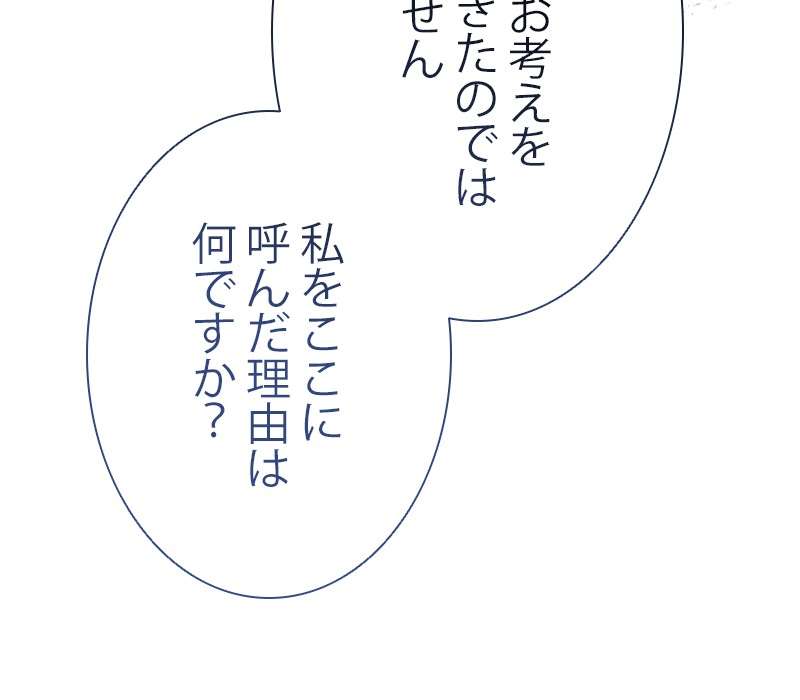 お考えを
きたのでは
せん
私をここに
呼んだ理由は
何ですか？